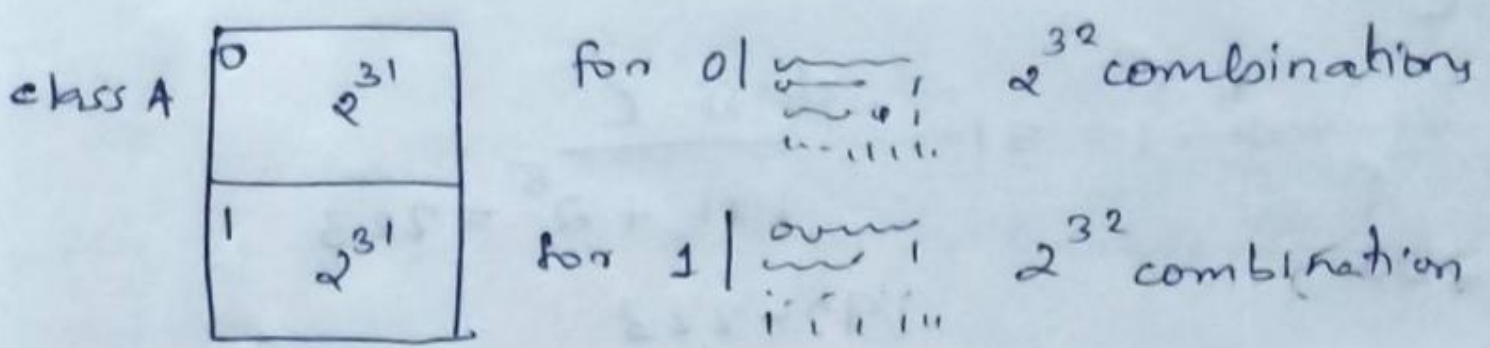 0
class A 2^31 for 0| 2^32 combinations
1 2^31 for 1| 2^32 combination